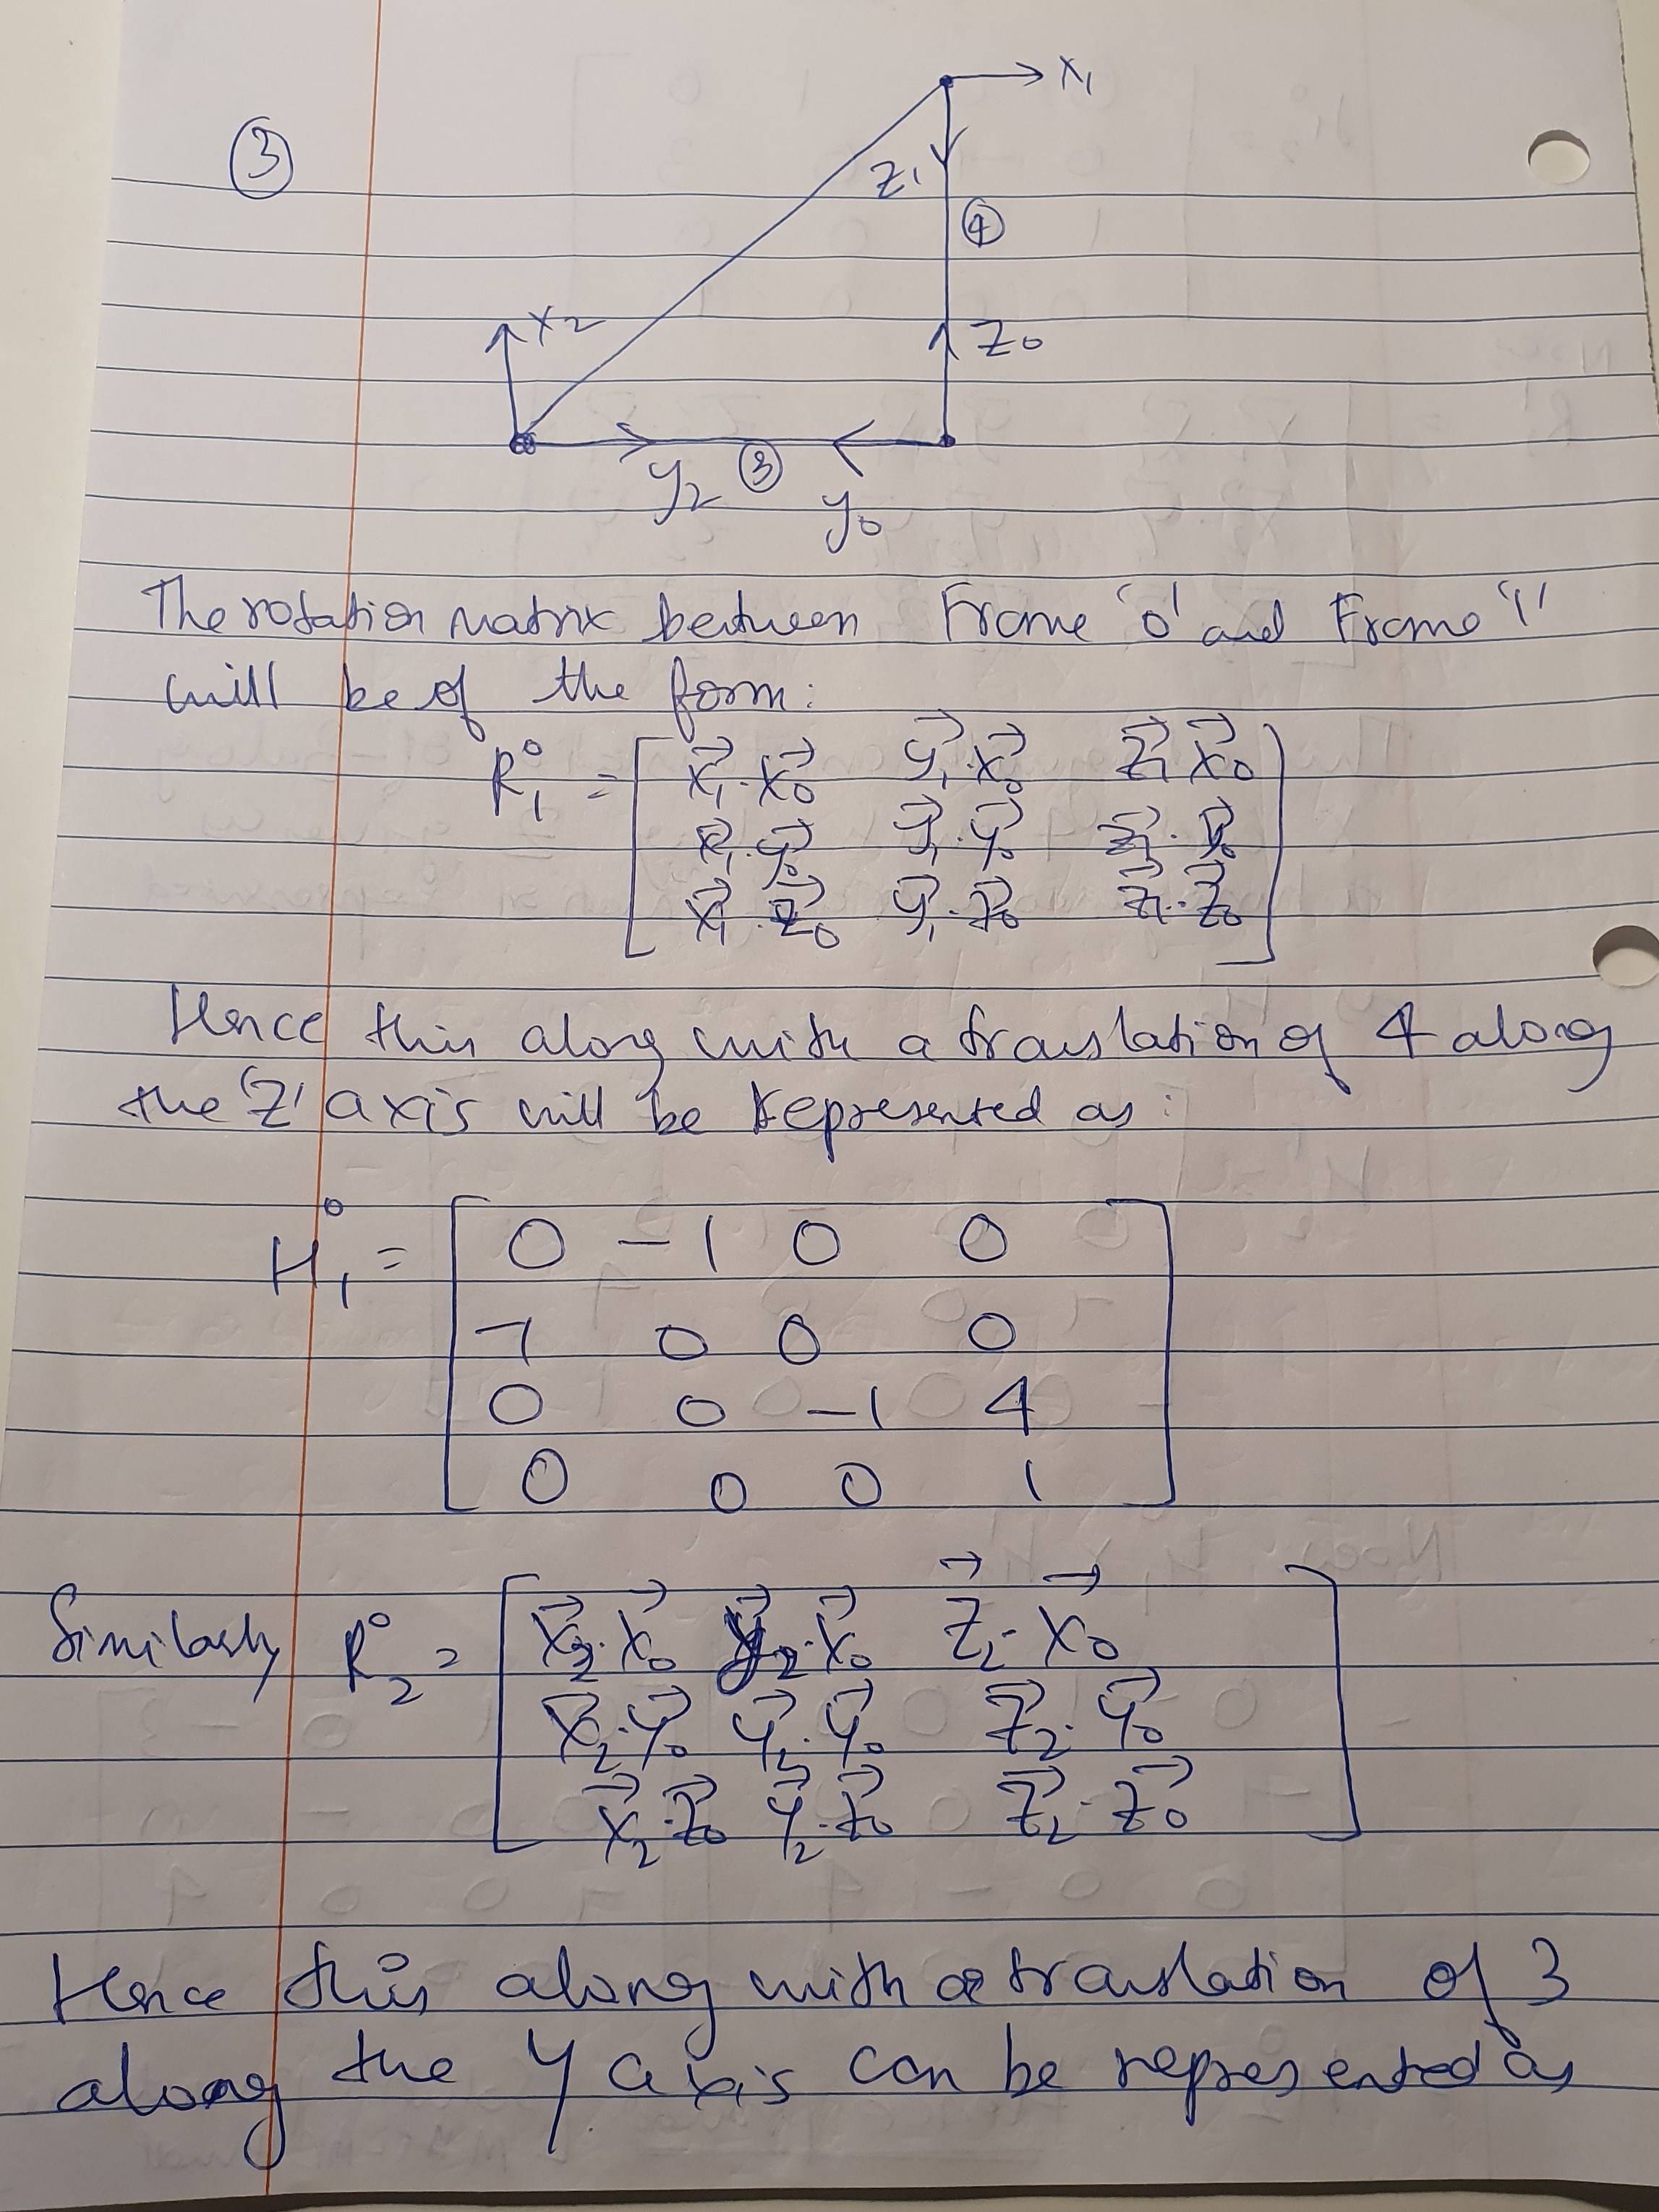 ③
X₁
Z₁
④
X₂
Z₀
y₂ ③ y₀
The rotation matrix between Frame '0' and Frame '1'
will be of the form:
R₁⁰ = [ x⃗₁·x⃗₀ y⃗₁·x⃗₀ z⃗₁·x⃗₀
x⃗₁·y⃗₀ y⃗₁·y⃗₀ z⃗₁·y⃗₀
x⃗₁·z⃗₀ y⃗₁·z⃗₀ z⃗₁·z⃗₀ ]
Hence this along with a translation of 4 along
the 'Z' axis will be represented as:
H₁⁰ = [ 0 -1 0 0
-1 0 0 0
0 0 -1 4
0 0 0 1 ]
Similarly R₂⁰ = [ x⃗₂·x⃗₀ y⃗₂·x⃗₀ z⃗₂·x⃗₀
x⃗₂·y⃗₀ y⃗₂·y⃗₀ z⃗₂·y⃗₀
x⃗₂·z⃗₀ y⃗₂·z⃗₀ z⃗₂·z⃗₀ ]
Hence this along with a translation of 3
along the Y axis can be represented as